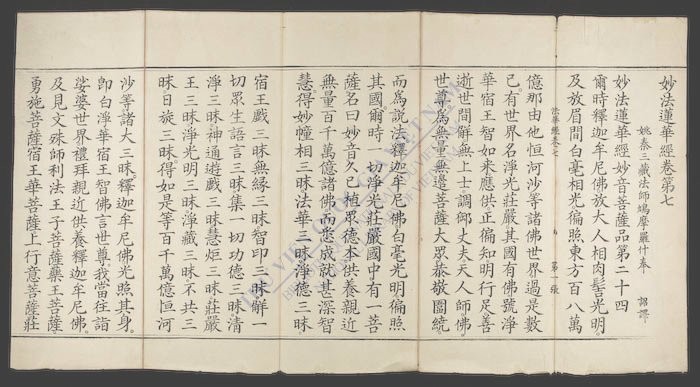 妙法蓮華經卷第七
姚秦三藏法師鳩摩羅什奉 詔譯
妙法蓮華經妙音菩薩品第二十四
爾時釋迦牟尼佛放大人相肉髻光明
及放眉間白毫相光徧照東方百八萬
法華經卷七 第一張
億那由他恒河沙等諸佛世界過是數
已有世界名淨光莊嚴其國有佛號淨
華宿王智如來應供正徧知明行足善
逝世間解無上士調御丈夫天人師佛
世尊為無量無邊菩薩大眾恭敬圍繞
而為說法釋迦牟尼佛白毫光明徧照
其國爾時一切淨光莊嚴國中有一菩
薩名曰妙音久已植眾德本供養親近
無量百千萬億諸佛而悉成就甚深智
慧得妙幢相三昧法華三昧淨德三昧
宿王戲三昧無緣三昧智印三昧解一
切眾生語言三昧集一切功德三昧清
淨三昧神通遊戲三昧慧炬三昧莊嚴
王三昧淨光明三昧淨藏三昧不共三
昧日旋三昧得如是等百千萬億恒河
沙等諸大三昧釋迦牟尼佛光照其身
即白淨華宿王智佛言世尊我當往詣
娑婆世界禮拜親近供養釋迦牟尼佛
及見文殊師利法王子菩薩藥王菩薩
勇施菩薩宿王華菩薩上行意菩薩莊